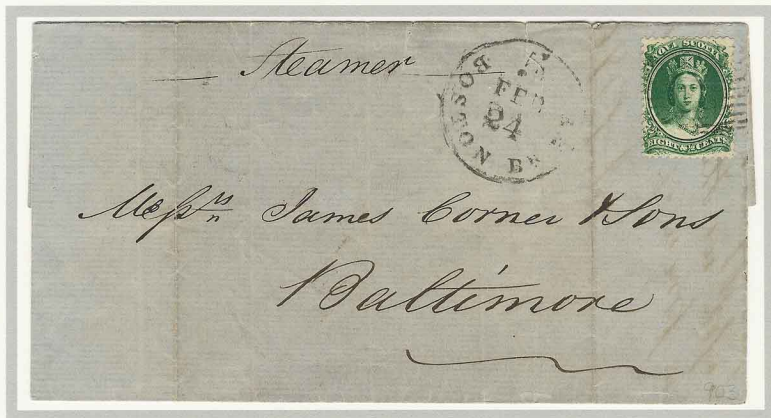 Steamer
BOSTON BR
FEB
24
NOVA SCOTIA
EIGHT ½ CENTS
Messrs James Corner & Sons
Baltimore
903